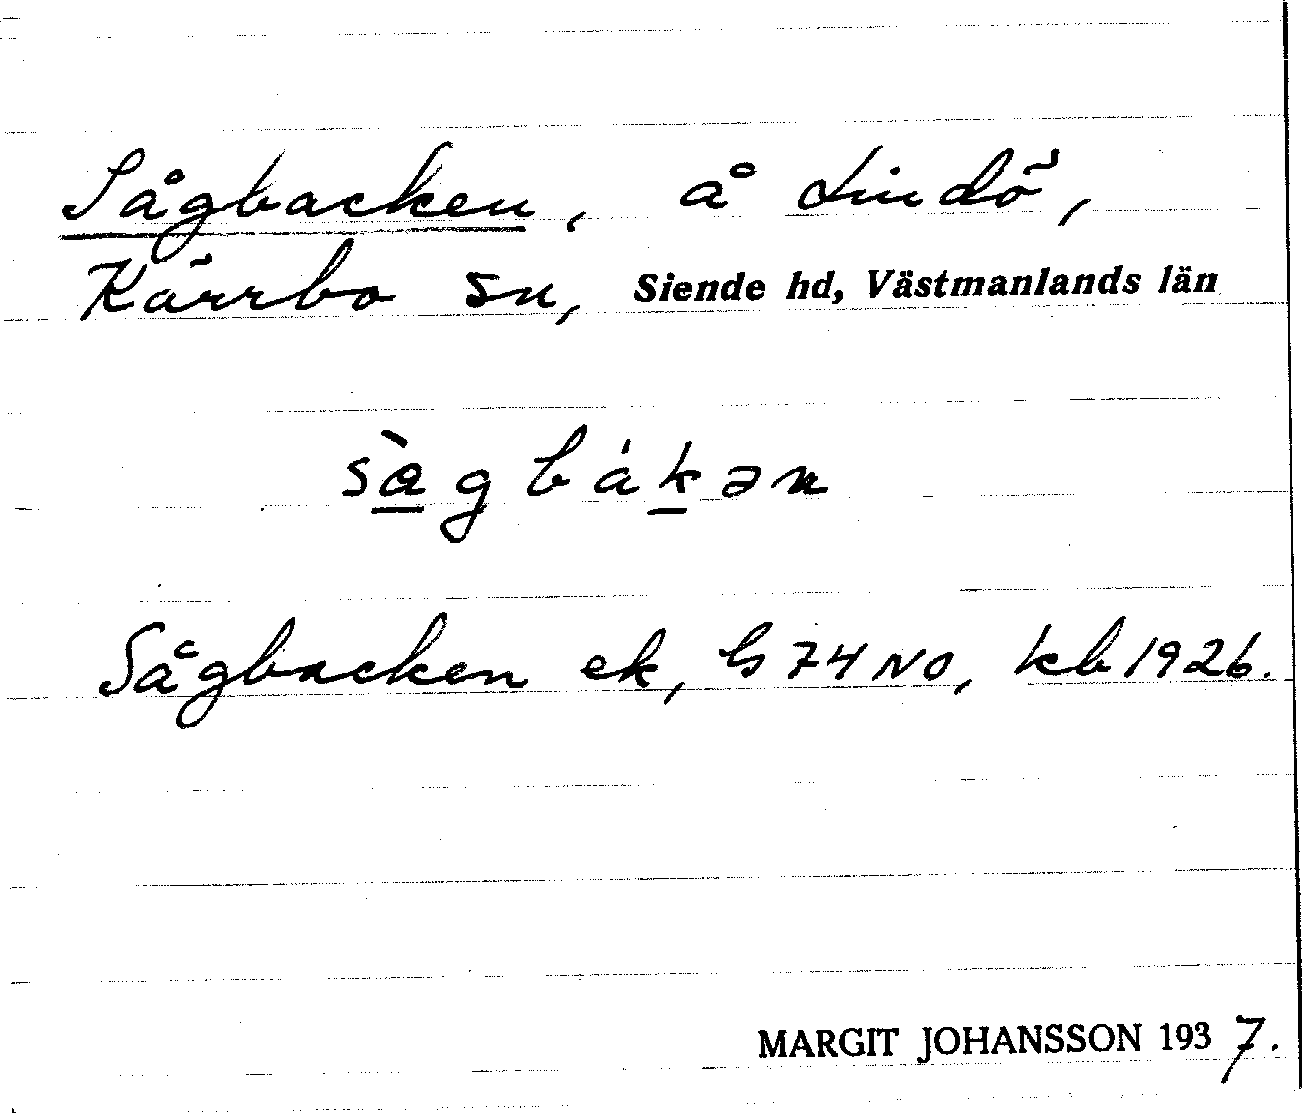 Sågbacken, å Lindö,
Kärrbo sn, Siende hd, Västmanlands län
sàgbákən
Sågbacken ek, G 74 NO, kb 1926.
MARGIT JOHANSSON 1937.